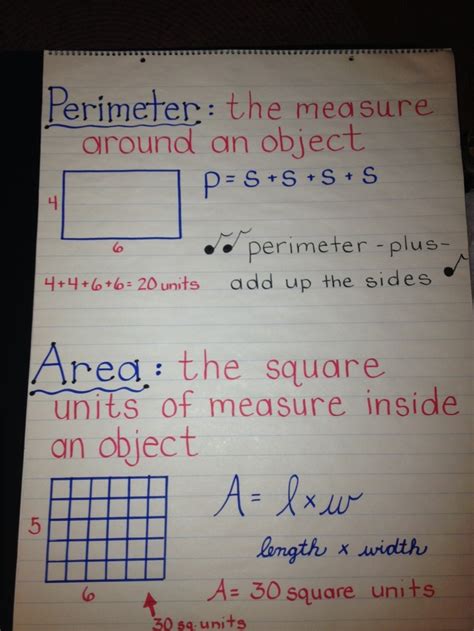 Perimeter: the measure
around an object
P = S + S + S + S
4
6
perimeter - plus -
4+4+6+6= 20 units
add up the sides
Area: the square
units of measure inside
an object
A = l x w
5
length x width
6
A= 30 square units
30 sq. units